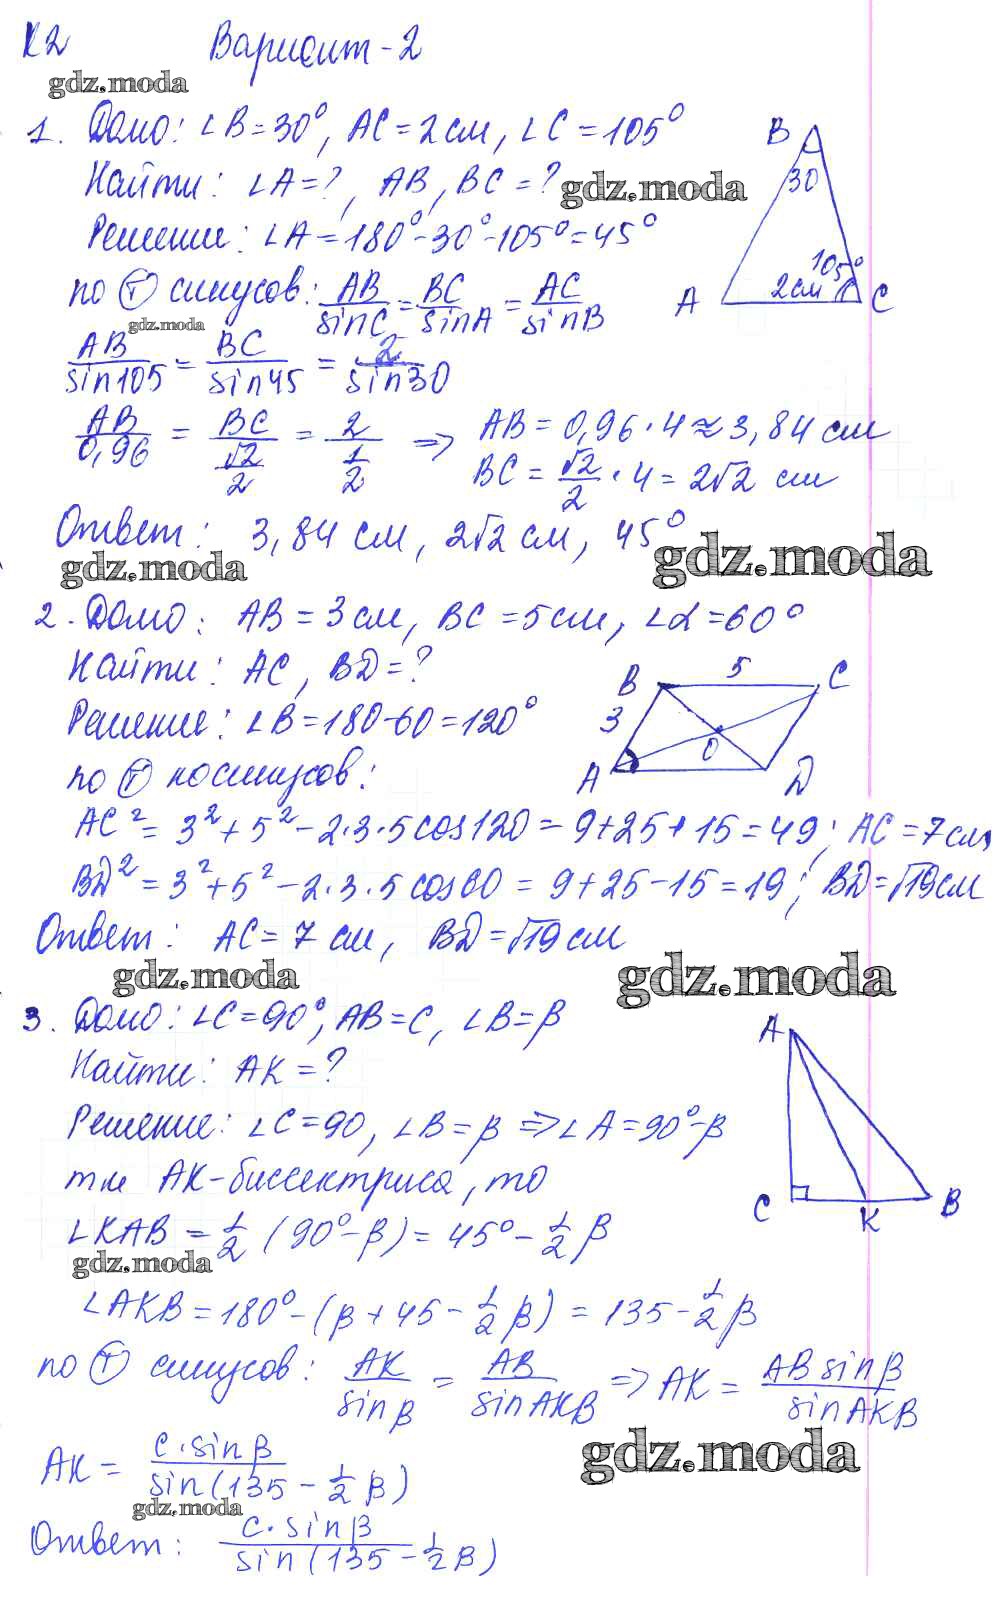 К2 Вариант-2
gdz.moda
1. Дано: ∠B=30°, AC=2см, ∠C=105°
Найти: ∠A=?, AB, BC=?
gdz.moda
Решение: ∠A=180°-30°-105°=45°
по Ⓣ синусов: AB/sinC = BC/sinA = AC/sinB
B
30
105°
2см
A
C
gdz.moda
AB/sin105 = BC/sin45 = 2/sin30
AB/0,96 = BC/(√2/2) = 2/(1/2) => AB=0,96·4≈3,84 см
BC=√2/2·4=2√2 см
Ответ: 3,84 см, 2√2 см, 45°
gdz.moda
gdz.moda
2. Дано: AB=3см, BC=5см, ∠α=60°
Найти: AC, BD=?
Решение: ∠B=180-60=120°
по Ⓣ косинусов:
B
5
C
3
O
A
D
AC²=3²+5²-2·3·5cos120=9+25+15=49; AC=7см
BD²=3²+5²-2·3·5cos60=9+25-15=19; BD=√19см
Ответ: AC=7см, BD=√19см
gdz.moda
gdz.moda
3. Дано: ∠C=90°, AB=c, ∠B=β
Найти: AK=?
Решение: ∠C=90, ∠B=β => ∠A=90°-β
тк AK-биссектриса, то
A
C
K
B
∠KAB=1/2(90°-β)=45°-1/2β
gdz.moda
∠AKB=180°-(β+45-1/2β)=135-1/2β
по Ⓣ синусов: AK/sinβ = AB/sinAKB => AK = ABsinβ/sinAKB
gdz.moda
AK = c·sinβ/sin(135-1/2β)
gdz.moda
Ответ: c·sinβ/sin(135-1/2β)